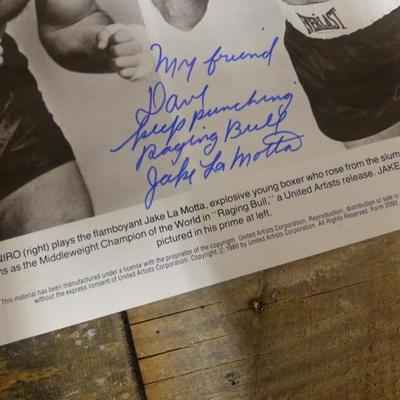 EVERLAST
My friend
Dave
keep punching
Raging Bull
Jake La Motta
NIRO (right) plays the flamboyant Jake La Motta, explosive young boxer who rose from the slum
ns as the Middleweight Champion of the World in "Raging Bull," a United Artists release. JAKE
pictured in his prime at left.
This material has been manufactured under a license with the proprietor of the copyright. United Artists Corporation. Reproduction, distribution or sale is
without the express consent of United Artists Corporation. Copyright © 1980 by United Artists Corporation. All Rights Reserved. Form 2092